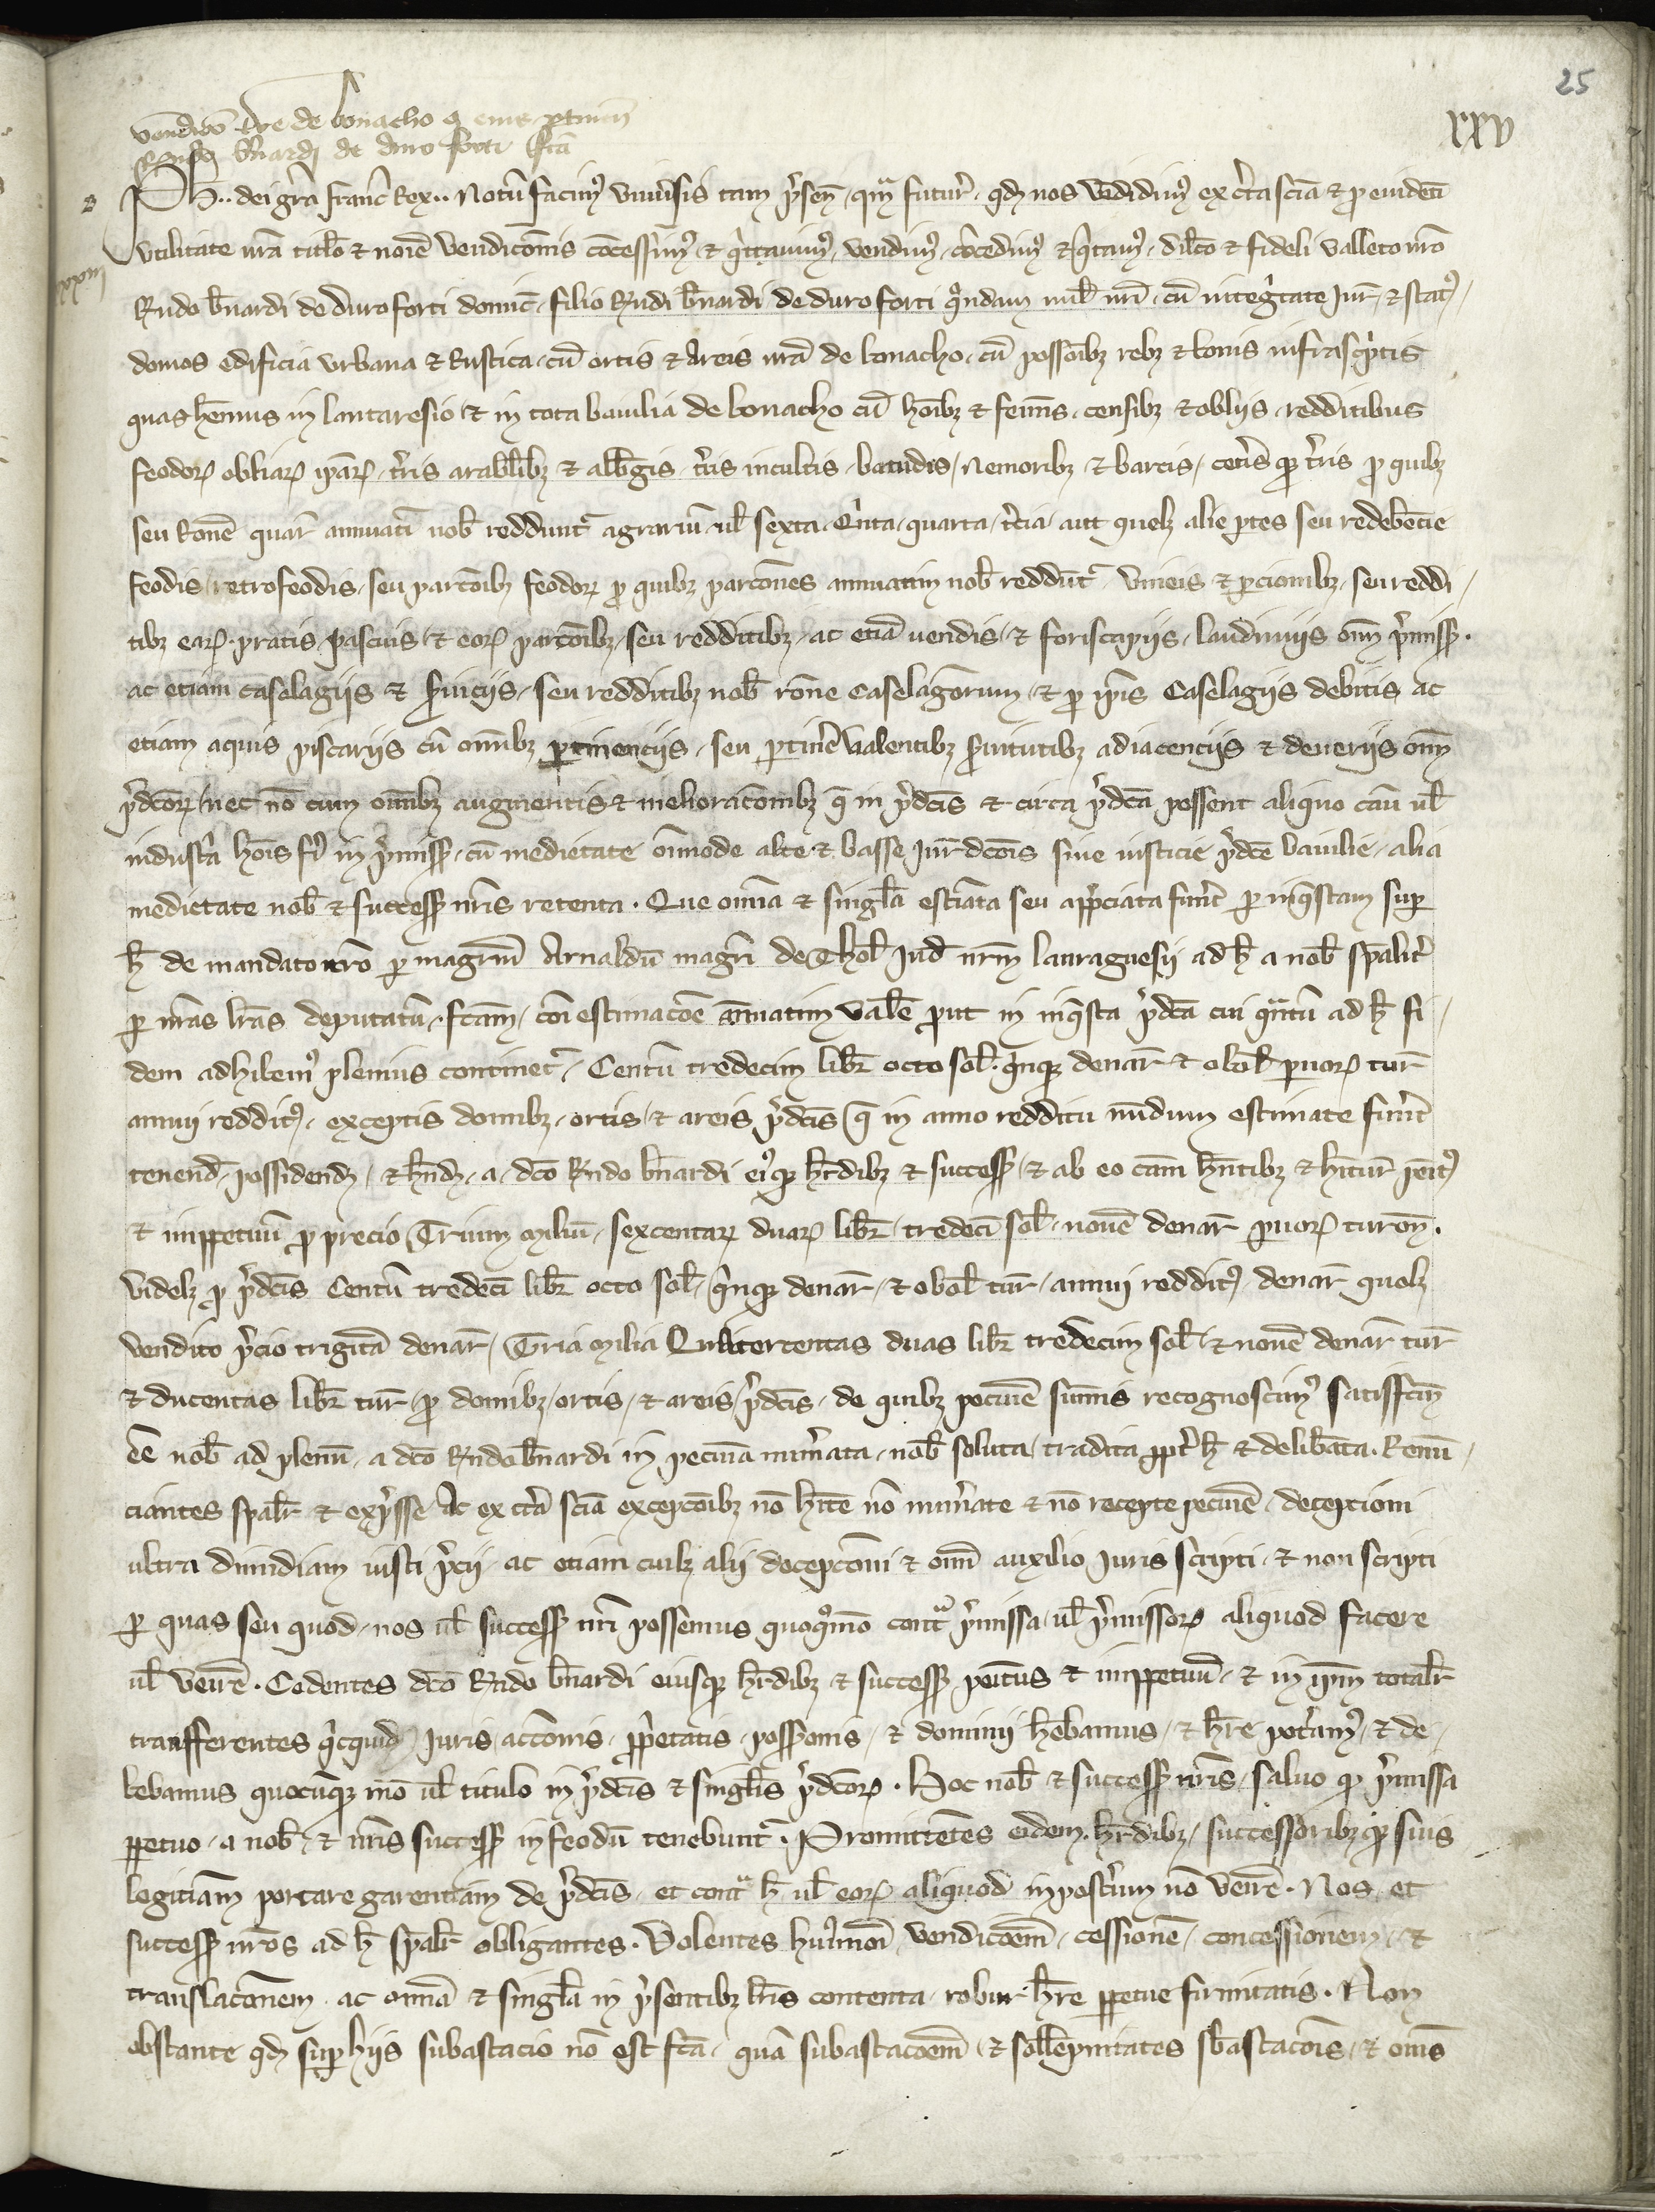 25
xxv
vendicō tre de bonacho q eius ꝑtineñ
Rnđo b̄nardi de duro forti fcā
Ph̄.. dei gr̄a franc̄ Rex.. Notū facimꝰ vniūsis tam p̄señ qm̄ futur̄ qđ nos vēdidimꝰ ex c̄ta scīa & ꝓ euidēti
vtilitate nr̄a titl̄o & noīe vendicōnis cōcessimꝰ & q̄ittauimꝰ vendimꝰ cōcedimꝰ & q̄itamꝰ dilc̄o & fideli valleto nr̄o
Rnđo b̄nardi de duroforti domic̄ filio Rnđi b̄nardi de duro forti qōndam mil̄ nr̄i cū inteḡtate Jur̄ & statꝰ
domos edificia vrbana & Rustica cū ortis & Areis nr̄a de bonacho cū possōibȝ rebȝ & bonis infrascp̄tis
quas hēmus in lantaresio & in tota bauilia de bonacho cū hoībȝ & femīs censibȝ & obliis redditibus
feodoꝝ obliaꝝ ip̄aꝝ t̄ris arablibȝ & alb̄gis t̄ris incultis batudis Nemoribȝ & bartis cet̄isqꝫ t̄ris ꝓ quibȝ
seu Rōne quar̄ annuatī nob̄ reddunt᷑ agrariū ul̄ sexta Qn̄ta quarta t̄cia aut quelȝ alie ꝑtes seu redebēcie
feodis retrofeodis seu parcōibȝ feodoꝝ ꝓ quibȝ parcōnes annuatim nob̄ reddūt᷑ vineis & ꝑcionibȝ seu reddi
tibȝ eaꝝ pratis pascuis & eoꝝ parcōibȝ seu redditibȝ ac etiā uendis & foriscapiis laudimiis oīm p̄missꝝ
ac etiam caselagiis & s̄uiciis seu redditibȝ nob̄ rōne caselagiorum & ꝓ ip̄is Caselagiis debitis ac
etiam aquis piscariis cū omībȝ ꝑtinenciis seu ꝑtinē valentibȝ s̄uitutibȝ adiacenciis & deueriis oīm
p̄dc̄oꝝ nec nō cum omībȝ augmentis & melioracōnibȝ q̄ in p̄dc̄is & circa p̄dc̄a possent aliquo cāu ul̄
industr̄a hoīs fi᷑ in p̄missꝭ cū medietate oīmode alte & basse Jur̄dcōis siue iusticie p̄dc̄e bauilie alia
medietate nob̄ & successꝭ nr̄is retenta. Que omīa & singl̄a estiāta seu app̄ciata fuer̄t ꝑ inq̄stam sup
h̄ de mandato nr̄o ꝑ magrm̄ Arnaldū magr̄i de Thol̄ Iud̄ nr̄m lauraguesii ad h̄ a nob̄ spāliter
ꝑ nr̄as lr̄as deputatū fc̄am cōi estimacōe ānuatim valē put in inq̄sta p̄dc̄a cui qn̄tū ad h̄ fi
dem adhibemꝰ plenius continet᷑ Centū tredecim libr̄ octo sol̄ qn̄qꝫ denar̄ & obol̄ ꝑuoꝝ tur̄
annui redditꝰ exceptis domibȝ ortis & areis p̄dc̄is q̄ in anno redditu nūdum estimate fuer̄t
tenend̄ possidend̄ & hn̄d̄ a dc̄o Rnđo b̄nardi eiꝰqꝫ hr̄dibȝ & successꝭ & ab eo cām hn̄tibȝ & hītur̄ peītꝰ
& imppetuū ꝓ precio Trium miliū sexcentaꝝ duaꝝ libr̄ tredecī sol̄ nouē denar̄ ꝑuoꝝ turoñ
videlȝ ꝓ p̄dc̄is Centū tredecī libr̄ octo sol̄ qn̄qꝫ denar̄ & obol̄ tur̄ annui redditꝰ denar̄ quolȝ
vendito p̄cio trigītā denar̄ Tria milia Quatercentas duas libr̄ tredecim sol̄ & nouē denar̄ tur̄
& ducentas libr̄ tur̄ ꝓ domibȝ ortis & areis p̄dc̄is de quibȝ pecuīe summis recognoscimꝰ satisfc̄m
ēe nob̄ ad plenū a dc̄o Rnđo b̄nardi in pecuīa num̄ata nob̄ soluta tradita ppt̄ h̄ & delib̄ata. Renū
ciantes spāl̄r & exp̄sse Ac ex c̄ta scīa excepcōibȝ nō hīte nō num̄ate & nō recepte pecuīe decepcioni
ultra dimidiam iusti p̄cii ac etiam cuilȝ alii decepcōni & omī auxilio Juris scripti & non scripti
ꝑ quas seu quod nos ul̄ successꝭ nr̄i possemus quoqōmo contᵃ p̄missa ul̄ p̄missoꝝ aliquod facere
ul̄ venīre. Cedentes dc̄o Rnđo b̄nardi eiusqꝫ hr̄dibȝ & successꝭ peītus & imppetuū & in ip̄m totalr̄
transferentes q̄icquid Juris accōnis p̄prietatis possōnis & dominii hēbamus & hr̄e pot̄amꝰ & de
bebamus quocūqꝫ mō ul̄ titulo in p̄dc̄is & singl̄is p̄dc̄oꝝ. Hoc nob̄ & successꝭ nr̄is saluo qꝫ p̄missa
ꝑpetuo a nob̄ & nr̄is successꝭ in feodū tenebunt᷑. Promittētes eidem hr̄dibȝ successoribȝqꝫ suis
legitīam portare garentiam de p̄dc̄is et contᵃ h̄ ul̄ eoꝝ aliquod inpost̄um nō venīre. Nos et
successꝭ nr̄os ad h̄ spāl̄r obligantes. Volentes huiꝰmōi vendicōem cessionē concessionem &
translacōnem ac omīa & singl̄a in p̄sentibȝ lr̄is contenta robur hr̄e ꝑpetue firmitatis. Non
obstante qđ sup hiis subastacio nō est fc̄a quā subastacōem & sollēpnitates sb̄astacōis & oms̄